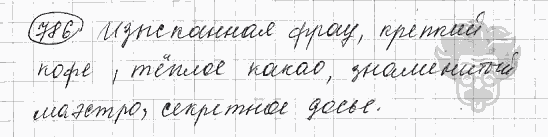 786 Изысканная фрау, крепкий
кофе, тёплое какао, знаменитый
маэстро, секретное досье.